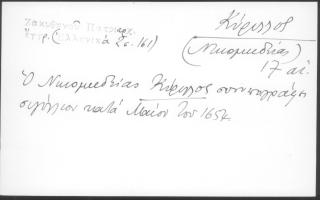 Ζακυθηνοῦ Πατριαρχ.
Ἔγγρ. (Ἑλληνικά 2ος 161)
Κύριλλος
(Νικομηδείας)
17 αἰ.
Ὁ Νικομηδείας Κύριλλος συνυπογράφει
σιγίλλιον κατά Μαίον του 1654.